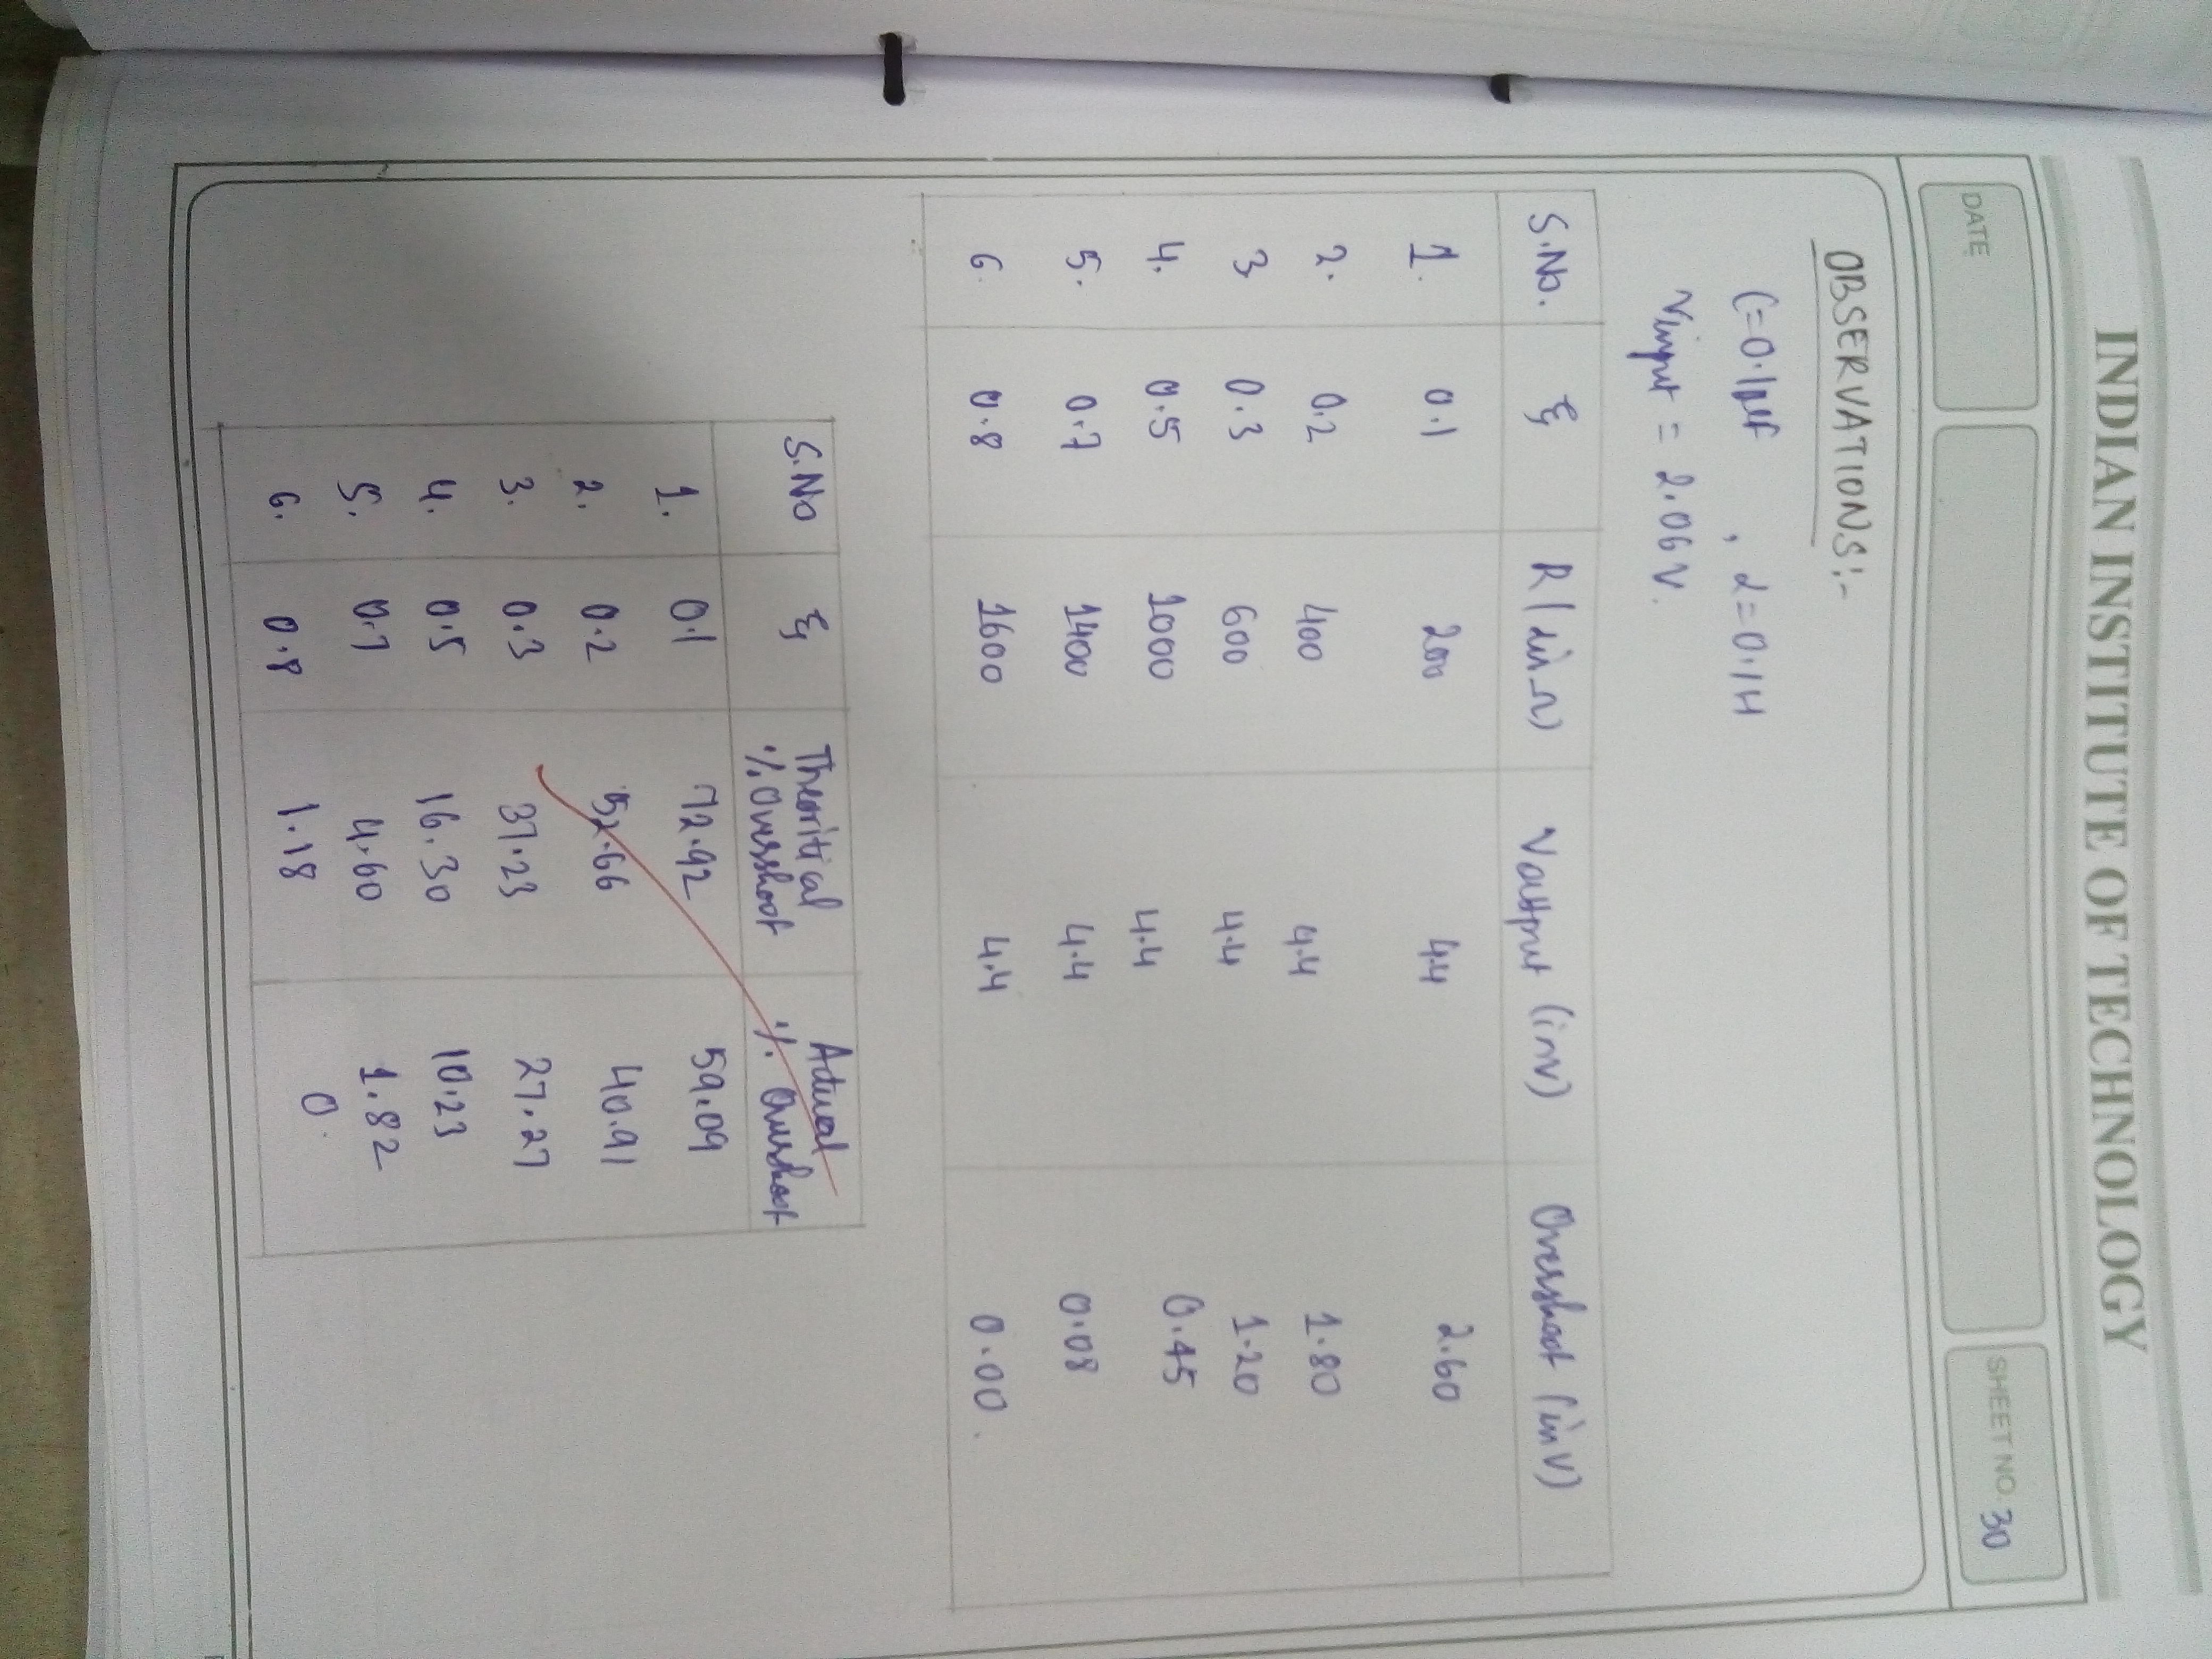 INDIAN INSTITUTE OF TECHNOLOGY
DATE
SHEET NO. 30
OBSERVATIONS:-
C=0.1μf , L=0.1H
Vinput = 2.06V.
S.No. ξ R(in Ω) Voutput (inV) Overshoot (inV)
1. 0.1 200 4.4 2.60
2. 0.2 400 4.4 1.80
3 0.3 600 4.4 1.20
4. 0.5 1000 4.4 0.45
5. 0.7 1400 4.4 0.08
6. 0.8 1600 4.4 0.00.
S.No ξ Theoritical % Overshoot Actual % Overshoot
1. 0.1 72.92 59.09
2. 0.2 52.66 40.91
3. 0.3 37.23 27.27
4. 0.5 16.30 10.23
5. 0.7 4.60 1.82
6. 0.8 1.18 0.